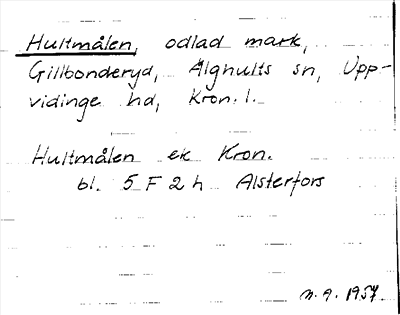 Hultmålen, odlad mark,
Gillbonderyd, Älghults sn, Upp-
vidinge hd, Kron. l.
Hultmålen ek Kron.
bl. 5 F 2 h Alsterfors
M. A. 1957